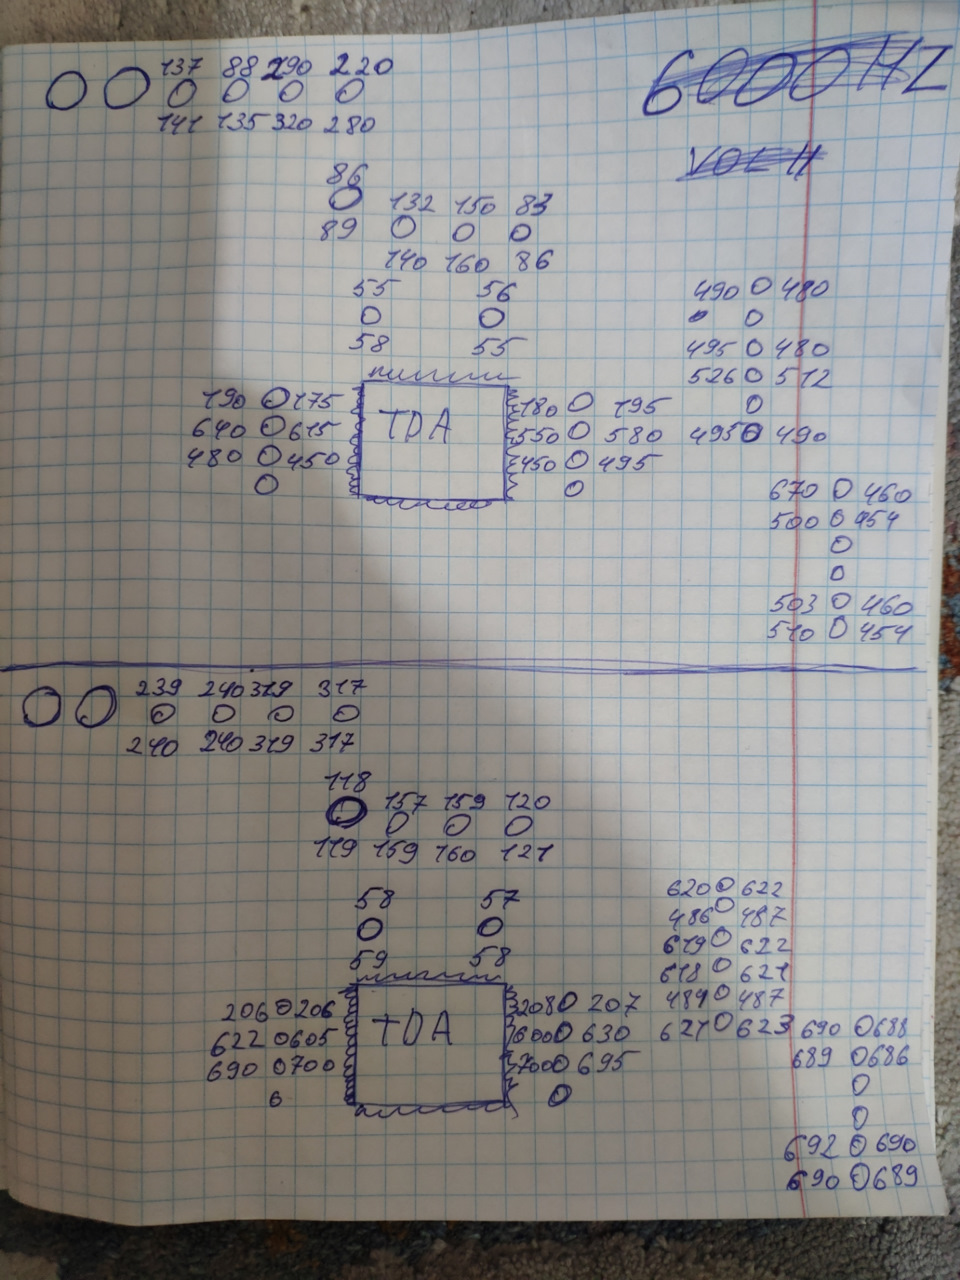 137 88 290 220
6000HZ
141 135 320 280
86
132 150 83
89
140 160 86
55 56
490 480
58 55
495 480
526 512
190 175
180 195
TDA
640 615
550 580
495 490
480 450
450 495
670 460
500 454
503 460
510 454
239 240 319 317
240 240 319 317
118
157 159 120
119 159 160 121
58 57
620 622
486 487
59 58
619 622
618 621
206 206
208 207
484 487
TDA
622 605
600 630
621 623
690 688
690 700
700 695
689 686
692 690
690 689